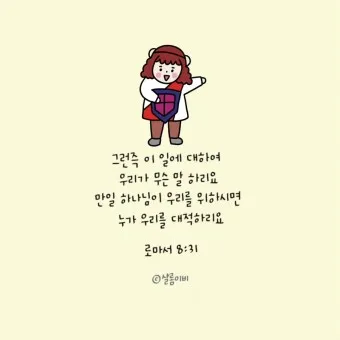 그런즉 이 일에 대하여
우리가 무슨 말 하리요
만일 하나님이 우리를 위하시면
누가 우리를 대적하리요
로마서 8:31
©샬롬이비